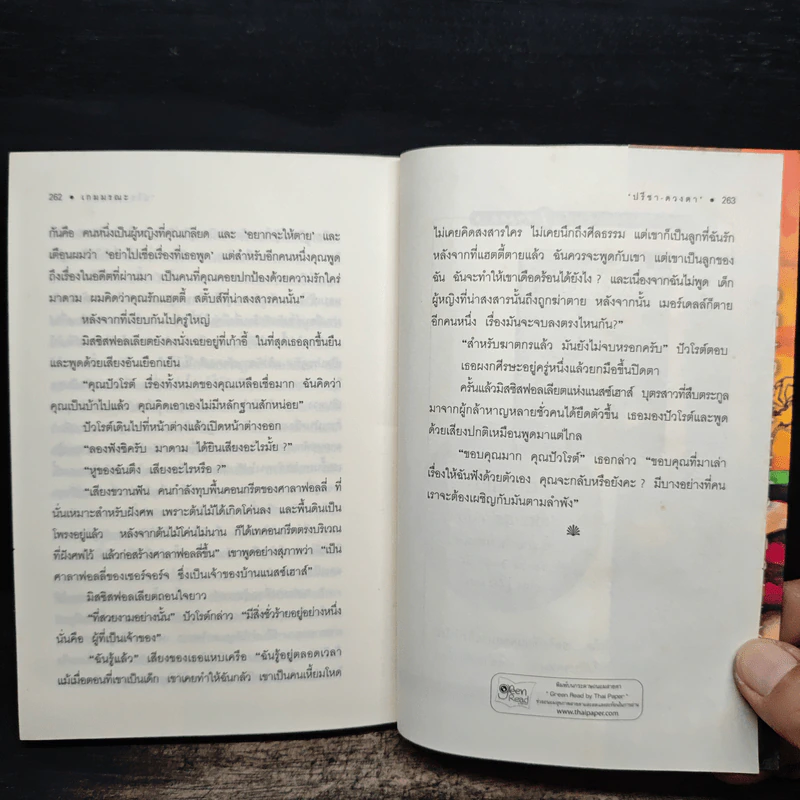 262 • เกมมรณะ
กันคือ คนหนึ่งเป็นผู้หญิงที่คุณเกลียด และ 'อยากจะให้ตาย' และ
เตือนผมว่า 'อย่าไปเชื่อเรื่องที่เธอพูด' แต่สำหรับอีกคนหนึ่งคุณพูด
ถึงเรื่องในอดีตที่ผ่านมา เป็นคนที่คุณคอยปกป้องด้วยความรักใคร่
มาดาม ผมคิดว่าคุณรักแฮตตี้ สตั๊บส์ที่น่าสงสารคนนั้น"
หลังจากที่เงียบกันไปครู่ใหญ่
มิสซิสฟอลเลียตยังคงนั่งเฉยอยู่ที่เก้าอี้ ในที่สุดเธอลุกขึ้นยืน
และพูดด้วยเสียงอันเยือกเย็น
"คุณปัวโรต์ เรื่องทั้งหมดของคุณเหลือเชื่อมาก ฉันคิดว่า
คุณเป็นบ้าไปแล้ว คุณคิดเอาเองไม่มีหลักฐานสักหน่อย"
ปัวโรต์เดินไปที่หน้าต่างแล้วเปิดหน้าต่างออก
"ลองฟังซิครับ มาดาม ได้ยินเสียงอะไรมั้ย ?"
"หูของฉันตึง เสียงอะไรหรือ ?"
"เสียงขวานฟัน คนกำลังทุบพื้นคอนกรีตของศาลาฟอลลี่ ที่
นั่นเหมาะสำหรับฝังศพ เพราะต้นไม้ได้เกิดโค่นลง และพื้นดินเป็น
โพรงอยู่แล้ว หลังจากต้นไม้โค่นไม่นาน ก็ได้เทคอนกรีตตรงบริเวณ
ที่ฝังศพไว้ แล้วก่อสร้างศาลาฟอลลี่ขึ้น" เขาพูดอย่างสุภาพว่า "เป็น
ศาลาฟอลลี่ของเซอร์จอร์จ ซึ่งเป็นเจ้าของบ้านแนสซ์เฮาส์"
มิสซิสฟอลเลียตถอนใจยาว
"ที่สวยงามอย่างนั้น" ปัวโรต์กล่าว "มีสิ่งชั่วร้ายอยู่อย่างหนึ่ง
นั่นคือ ผู้ที่เป็นเจ้าของ"
"ฉันรู้แล้ว" เสียงของเธอแหบเครือ "ฉันรู้อยู่ตลอดเวลา
แม้เมื่อตอนที่เขาเป็นเด็ก เขาเคยทำให้ฉันกลัว เขาเป็นคนเหี้ยมโหด
"ปรีชา-ดวงตา" • 263
ไม่เคยคิดสงสารใคร ไม่เคยนึกถึงศีลธรรม แต่เขาก็เป็นลูกที่ฉันรัก
หลังจากที่แฮตตี้ตายแล้ว ฉันควรจะพูดกับเขา แต่เขาเป็นลูกของ
ฉัน ฉันจะทำให้เขาเดือดร้อนได้ยังไง ? และเนื่องจากฉันไม่พูด เด็ก
ผู้หญิงที่น่าสงสารนั้นถึงถูกฆ่าตาย หลังจากนั้น เมอร์เดลล์ก็ตาย
อีกคนหนึ่ง เรื่องมันจะจบลงตรงไหนกัน?"
"สำหรับฆาตกรแล้ว มันยังไม่จบหรอกครับ" ปัวโรต์ตอบ
เธอผงกศีรษะอยู่ครู่หนึ่งแล้วยกมือขึ้นปิดตา
ครั้นแล้วมิสซิสฟอลเลียตแห่งแนสซ์เฮาส์ บุตรสาวที่สืบตระกูล
มาจากผู้กล้าหาญหลายชั่วคนได้ยืดตัวขึ้น เธอมองปัวโรต์และพูด
ด้วยเสียงปกติเหมือนพูดมาแต่ไกล
"ขอบคุณมาก คุณปัวโรต์" เธอกล่าว "ขอบคุณที่มาเล่า
เรื่องให้ฉันฟังด้วยตัวเอง คุณจะกลับหรือยังคะ ? มีบางอย่างที่คน
เราจะต้องเผชิญกับมันตามลำพัง"
Green Read
พิมพ์บนกระดาษถนอมสายตา
"Green Read by Thai Paper"
www.thaipaper.com